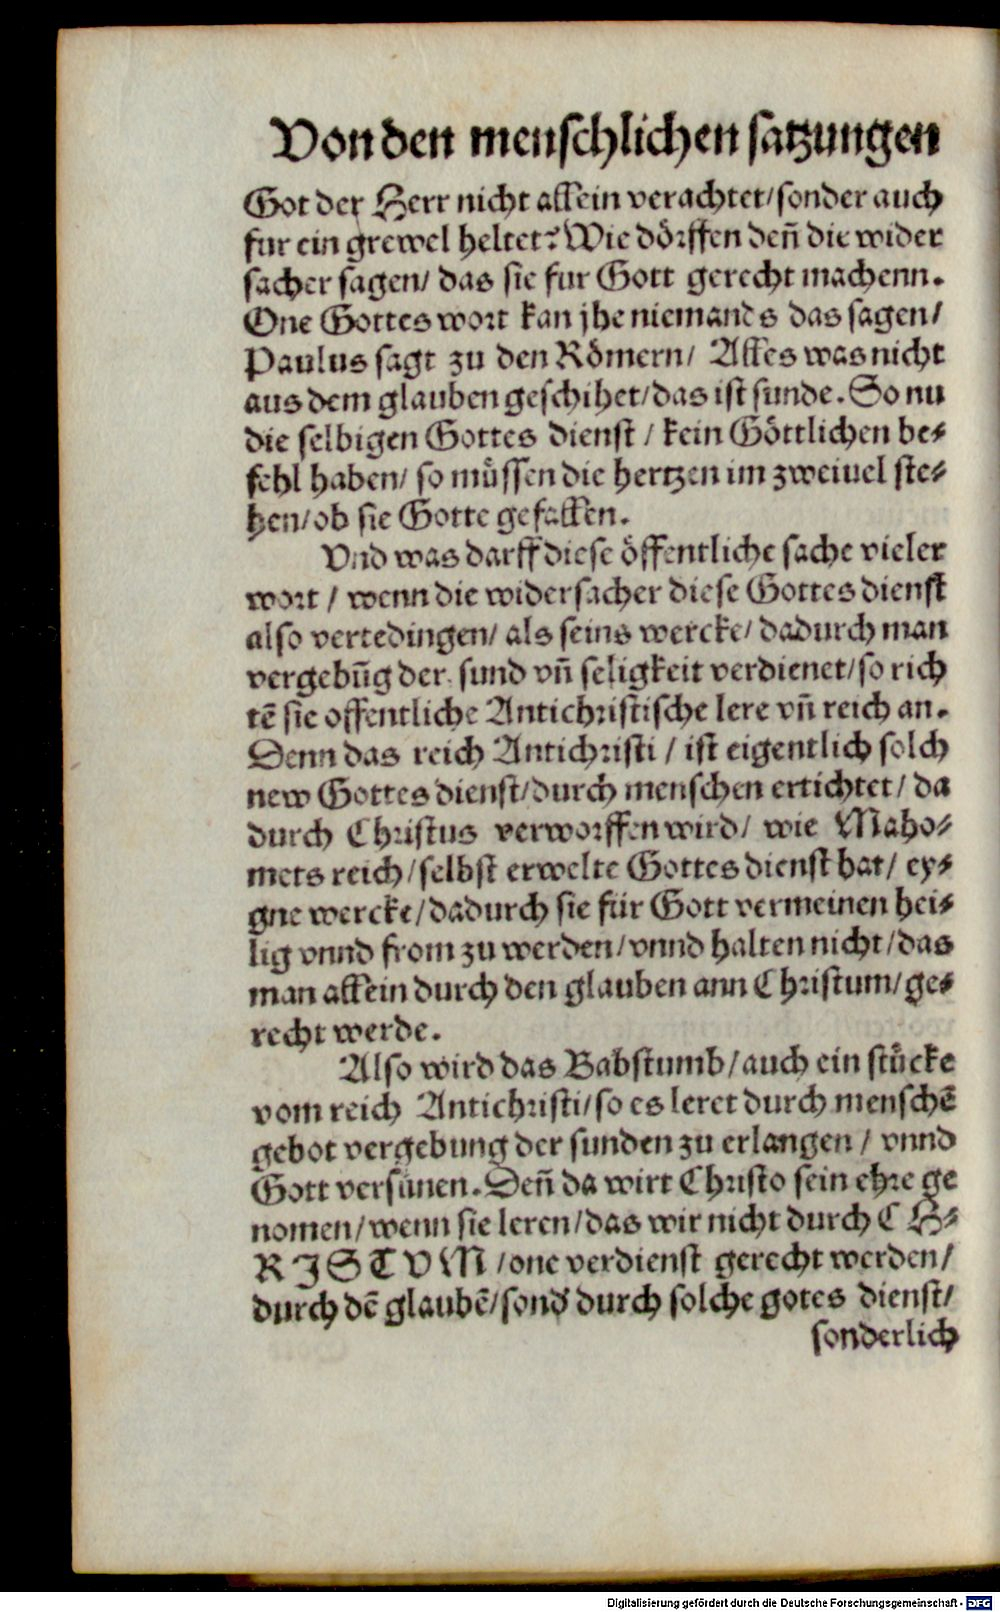 Von den menschlichen satzungen
Got der Herr nicht allein verachtet/sonder auch
fur ein grewel heltet? Wie dörffen deñ die wider
sacher sagen/ das sie fur Gott gerecht machenn.
One Gottes wort kan jhe niemands das sagen/
Paulus sagt zu den Römern/ Alles was nicht
aus dem glauben geschihet/das ist sunde. So nu
die selbigen Gottes dienst / kein Göttlichen be⸗
fehl haben/ so müssen die hertzen im zweiuel ste⸗
hen/ob sie Gotte gefallen.
Vnd was darff diese öffentliche sache vieler
wort / wenn die widersacher diese Gottes dienst
also vertedingen/ als seins wercke/ dadurch man
vergebūg der sund vñ seligkeit verdienet/so rich
tē sie offentliche Antichristische lere vñ reich an.
Denn das reich Antichristi / ist eigentlich solch
new Gottes dienst/durch menschen ertichtet/ da
durch Christus verworffen wird/ wie Maho⸗
mets reich/selbst erwelte Gottes dienst hat/ ey⸗
gne wercke/dadurch sie für Gott vermeinen hei⸗
lig vnnd from zu werden/vnnd halten nicht/das
man allein durch den glauben ann Christum/ge⸗
recht werde.
Also wird das Babstumb/auch ein stücke
vom reich Antichristi/so es leret durch menschē
gebot vergebung der sunden zu erlangen / vnnd
Gott versünen. Deñ da wirt Christo sein ehre ge
nomen/wenn sie leren/das wir nicht durch C H⸗
R J S T V M /one verdienst gerecht werden/
durch dē glaubē/sond' durch solche gotes dienst/
sonderlich
Digitalisierung gefördert durch die Deutsche Forschungsgemeinschaft - DFG